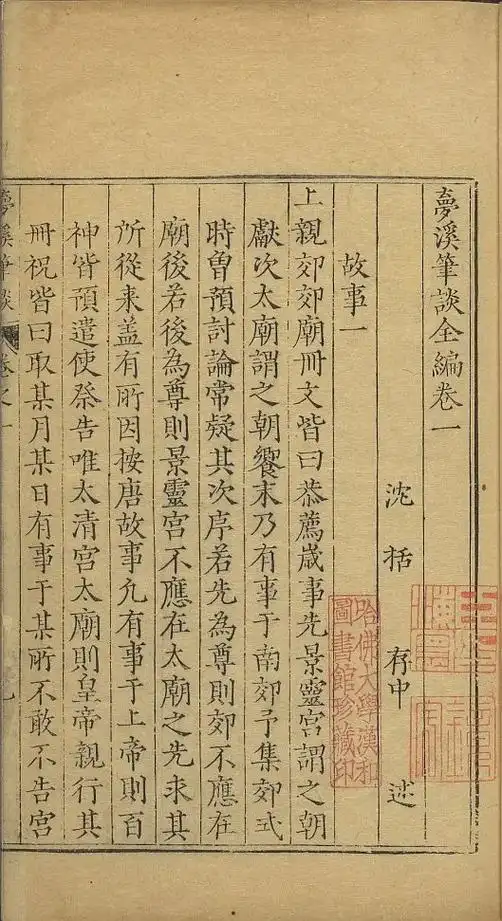 夢溪筆談全編卷一
沈括 存中 述
故事一
上親郊郊廟冊文皆曰恭薦歲事先景靈宮謂之朝
獻次太廟謂之朝饗末乃有事于南郊予集郊式
時曾預討論常疑其次序若先為尊則郊不應在
廟後若後為尊則景靈宮不應在太廟之先求其
所從来盖有所因按唐故事凢有事于上帝則百
神皆預遣使祭告唯太清宮太廟則皇帝親行其
冊祝皆曰取某月某日有事于某所不敢不告宮
夢溪筆談 卷之一
哈佛大學漢和
圖書館珍藏印